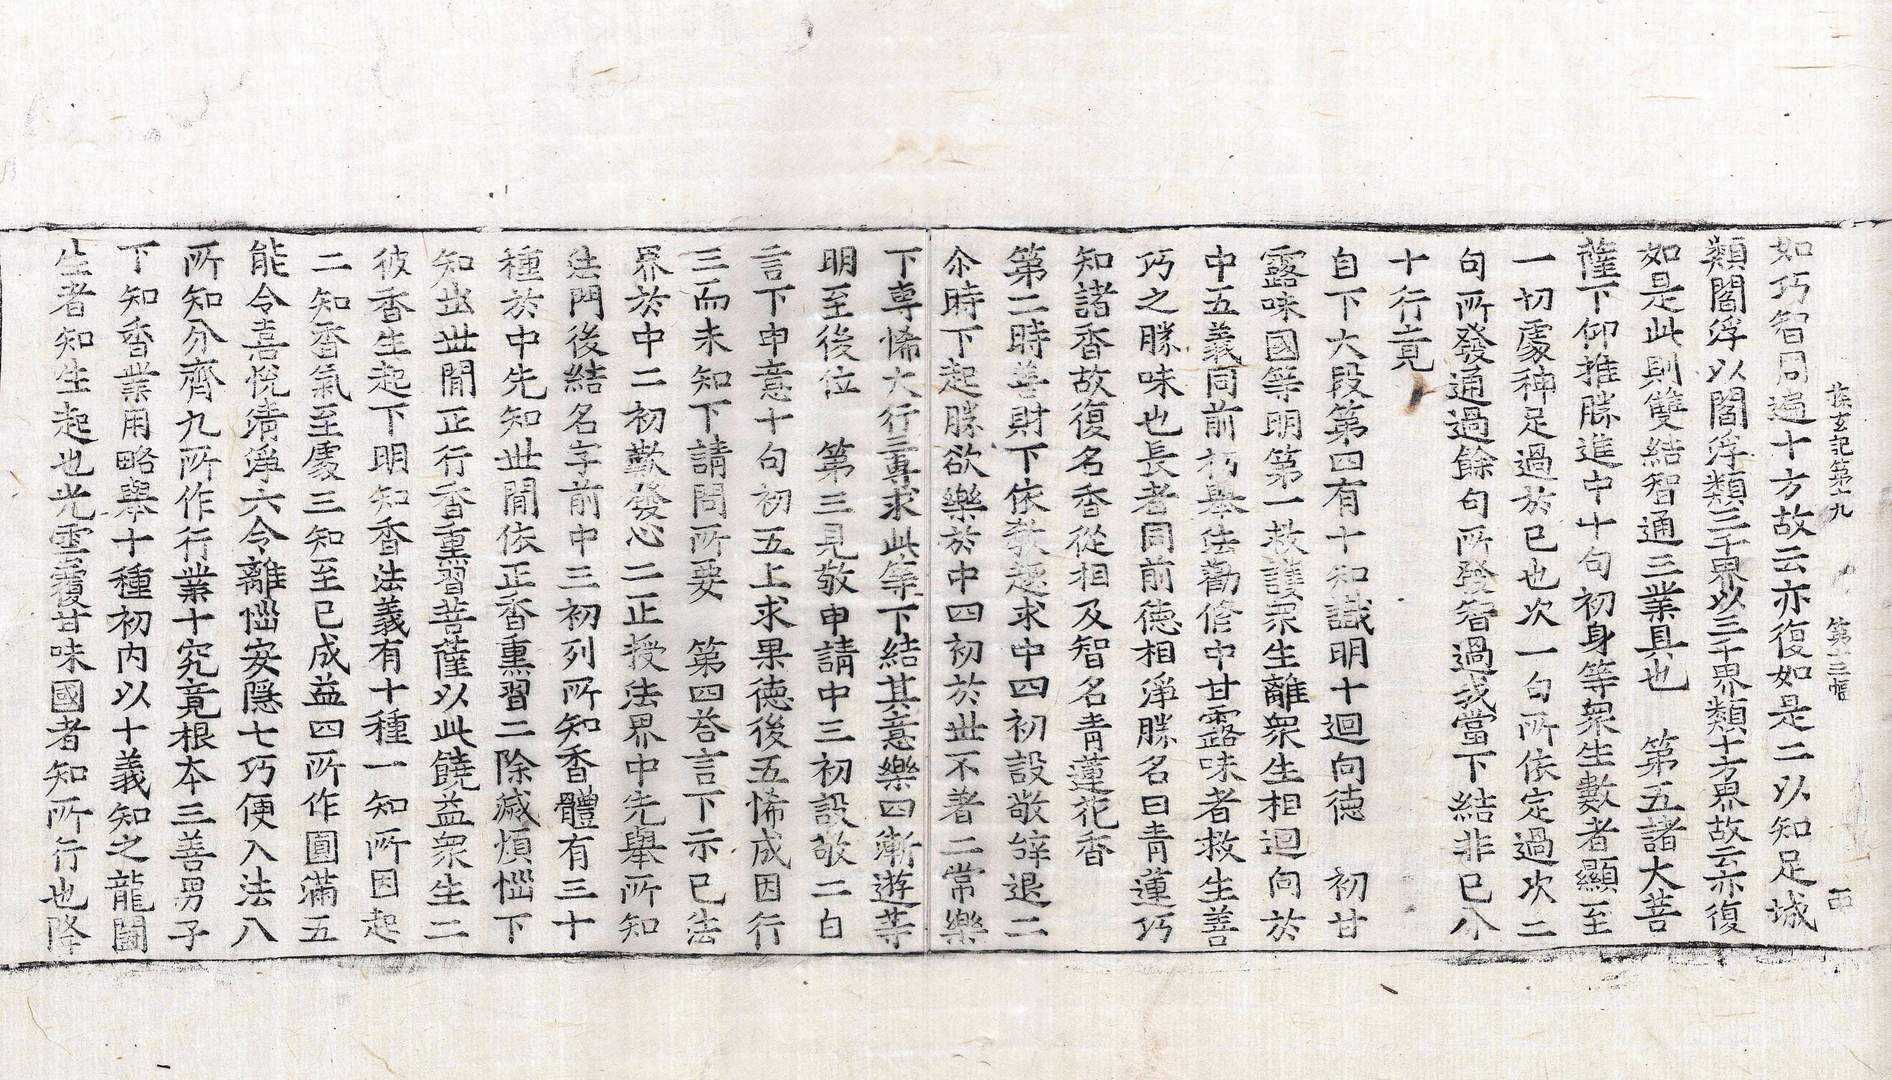 探玄記第十九 第十三幅 再
如巧智周遍十方故云亦復如是二以知足城
類閻浮以閻浮類三千界以三千界類十方界故云亦復
如是此則雙結智通三業具也 第五諸大菩
薩下仰推勝進中十句初身等衆生數者顯至
一切處神足過於已也次一句所依定過次二
句所發通過餘句所發智過我當下結非已分
十行竟
自下大段第四有十知識明十迴向德 初甘
露味國等明第一救護衆生離衆生相迴向於
中五義同前初舉法勸修中甘露味者救生善
巧之勝味也長者同前德相淨勝名曰青蓮巧
知諸香故復名香從相及智名青蓮花香
第二時善財下依教趣求中四初設敬辝退二
尒時下起勝欲樂於中四初於世不著二常樂
下専悕大行三專求此等下結其意樂四漸遊等
明至後位 第三見敬申請中三初設敬二白
言下申意十句初五上求果德後五悕成因行
三而未知下請問所要 第四荅言下示已法
界於中二初歎發心二正授法界中先舉所知
法門後結名字前中三初列所知香體有三十
種於中先知世間依正香熏習二除滅煩惱下
知出世間正行香熏習菩薩以此饒益衆生二
彼香生起下明知香法義有十種一知所因起
二知香氣至處三知至已成益四所作圓滿五
能令喜悅清淨六令離惱安隱七巧便入法八
所知分齊九所作行業十究竟根本三善男子
下知香業用略舉十種初內以十義知之龍鬪
生者知生起也光雲覆甘味國者知所行也降